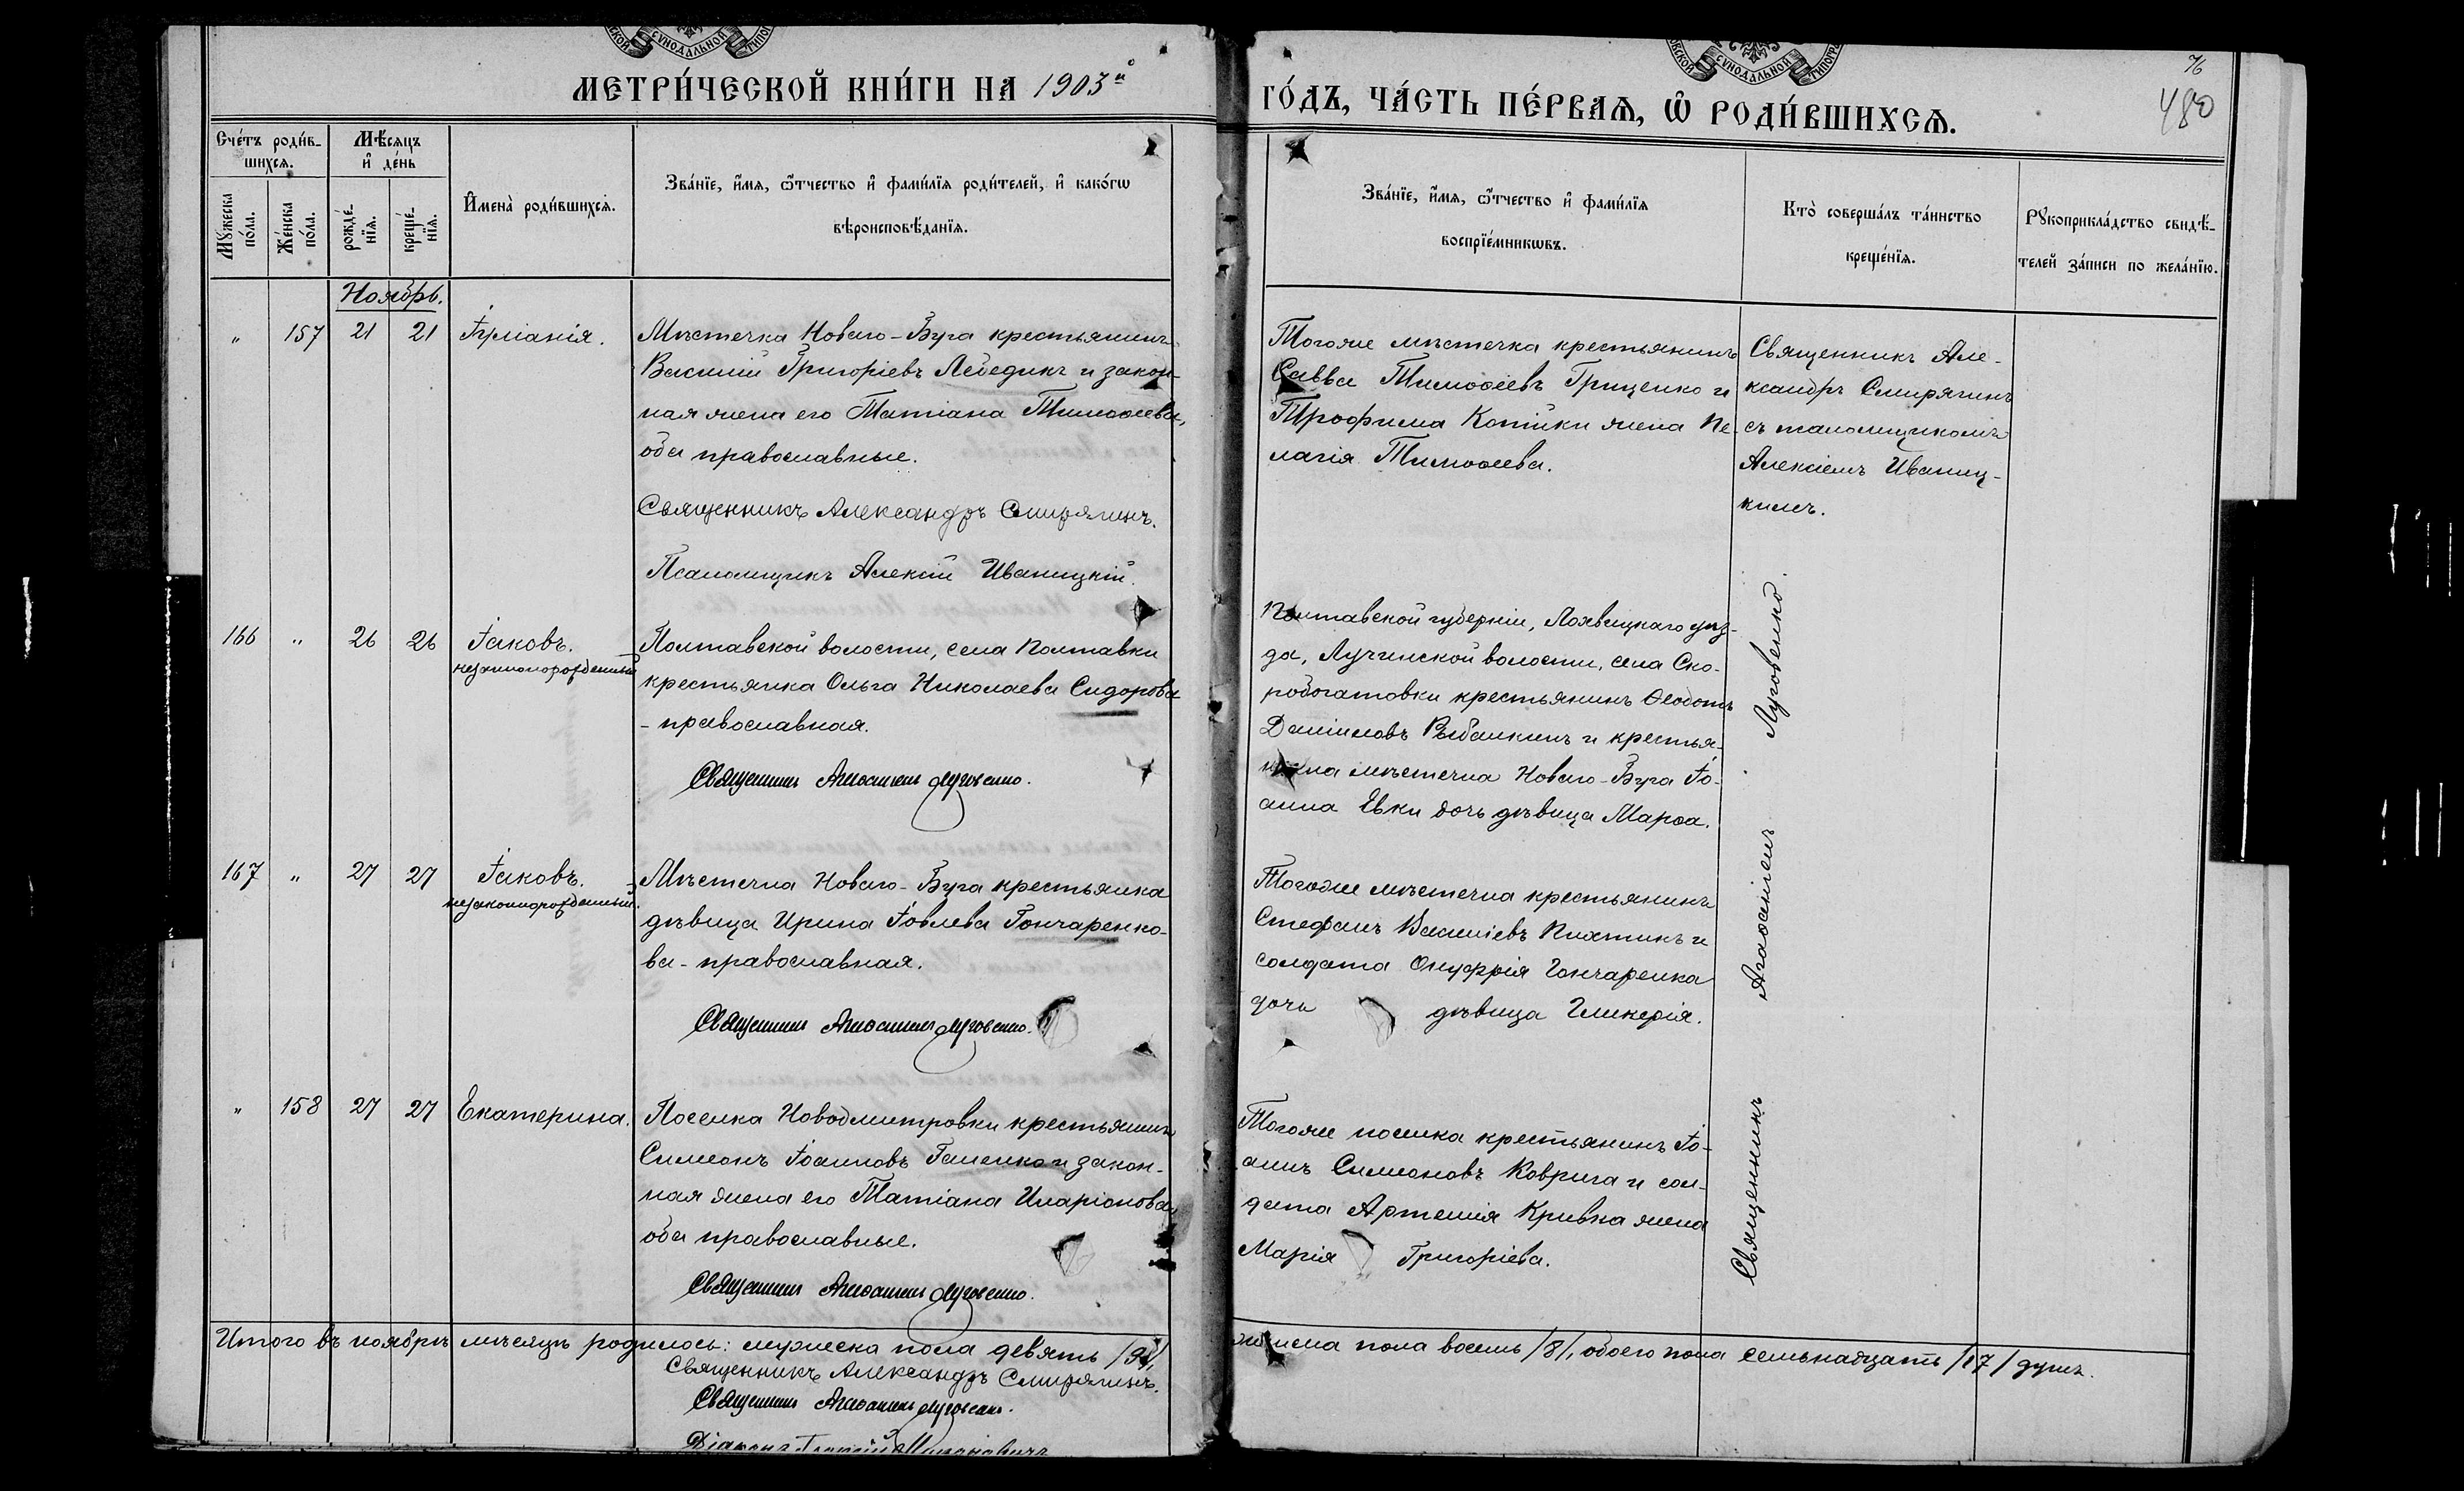 МЕТРИ́ЧЕСКОЙ КНИ́ГИ НА 1903й
ГО́ДЪ, ЧА́СТЬ ПЕ́РВАѦ, Ѡ҆ РОДИ́ВШИХСѦ.
76
480
Сче́тъ роди́в-
шихсѧ.
Мꙋ́жеска
по́ла.
Же́нска
по́ла.
Мѣ́сѧцъ
и҆ де́нь
рожде́-
нїѧ.
креще́-
нїѧ.
И҆мена̀ роди́вшихсѧ.
Зва́нїе, и҆́мѧ, ѻ҆́тчество и҆ фами́лїѧ роди́телей, и҆ како́гѡ
вѣроисповѣ́данїѧ.
Зва́нїе, и҆́мѧ, ѻ҆́тчество и҆ фами́лїѧ
воспрїе́мникѡвъ.
Кто̀ соверша́лъ та́инство
креще́нїѧ.
Рꙋкоприкла́дство свидѣ́-
телей за́писи по жела́нїю.
Ноябрь.
" 157 21 21 Іуліанія.
Мѣстечка Новаго-Буга крестьянинъ
Василій Григоріевъ Лебедикъ и закон-
ная жена его Татіана Тимоѳеева,
оба православные.
Священникъ Александръ Смирягинъ.
Псаломщикъ Алексій Иваницкій.
Тогоже мѣстечка крестьянинъ
Савва Тимоѳеевъ Гриценко и
Трофима Котика жена Пе-
лагія Тимоѳеева.
Священникъ Але-
ксандръ Смирягинъ
съ псаломщикомъ
Алексіемъ Иваниц-
кимъ.
166 " 26 26 Іаковъ.
незаконнорожденный
Полтавской волости, села Полтавки
крестьянка Ольга Николаева Сидорова
- православная.
Священникъ Агаѳангелъ Луговенко.
Полтавской губерніи, Лохвицкаго уѣз-
да, Лучинской волости, села Ско-
робогатовки крестьянинъ Ѳеодотъ
Даніиловъ Рыбалкинъ и крестья-
нина мѣстечка Новаго-Буга Іо-
анна Евки дочь дѣвица Марѳа.
167 " 27 27 Іаковъ.
незаконнорожденный.
Мѣстечка Новаго-Буга крестьянка
дѣвица Ирина Іовлева Гончаренко-
ва - православная.
Священникъ Агаѳангелъ Луговенко.
Тогоже мѣстечка крестьянинъ
Стефанъ Василіевъ Пихтинъ и
солдата Онуфрія Гончаренка
дочь дѣвица Гликерія.
" 158 27 27 Екатерина.
Поселка Новодмитровки крестьянинъ
Симеонъ Іоанновъ Галенко и закон-
ная жена его Татіана Иларіонова,
оба православные.
Священникъ Агаѳангелъ Луговенко.
Тогоже поселка крестьянинъ Іо-
аннъ Симеоновъ Коврига и сол-
дата Артемія Кривка жена
Марія Григоріева.
Священникъ Агаѳангелъ Луговенко.
Итого въ ноябрѣ мѣсяцѣ родилось: мужеска пола девять /9/, женска пола восемь /8/, обоего пола семьнадцать /17/ душъ.
Священникъ Александръ Смирягинъ.
Священникъ Агаѳангелъ Луговенко.
Діаконъ